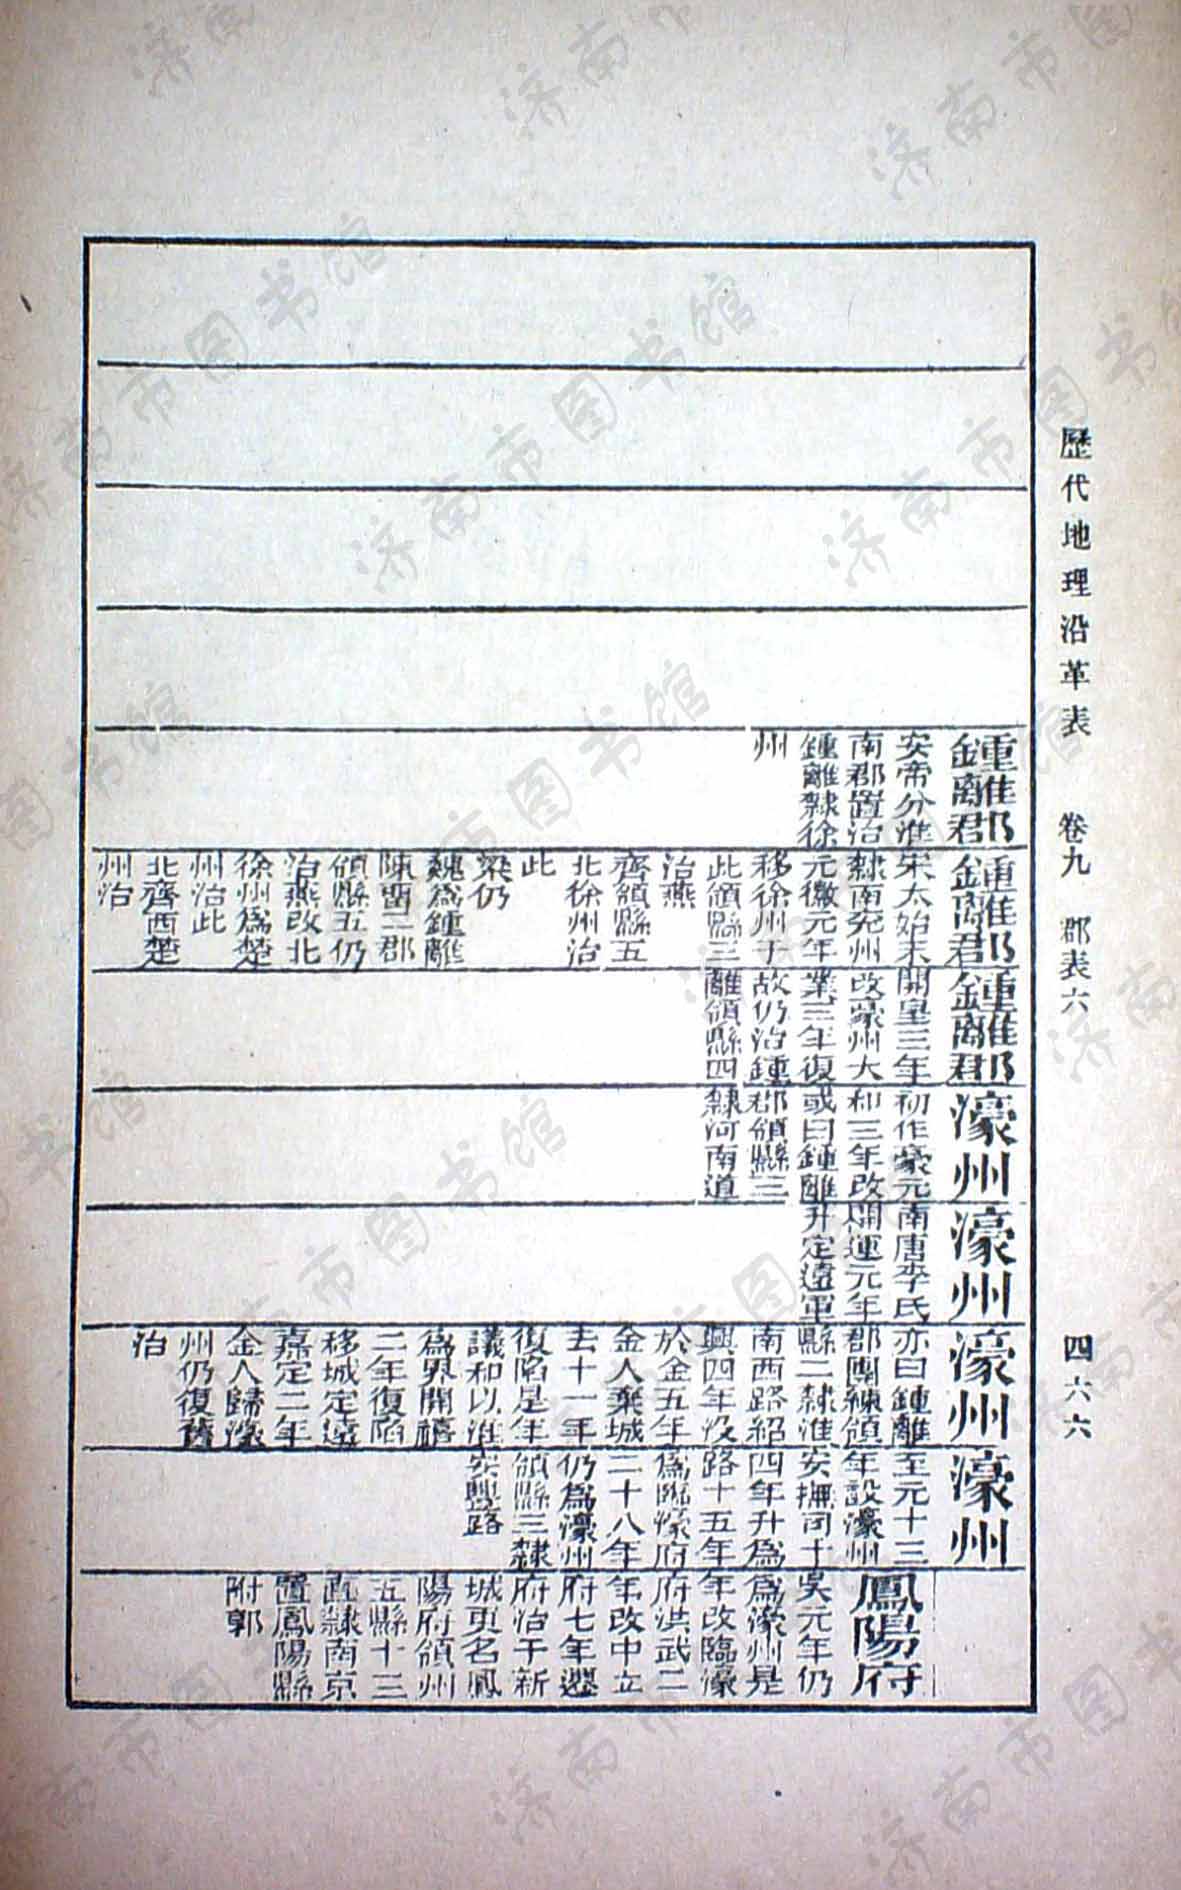 歷代地理沿革表　卷九　郡表六　四六六
鍾離郡
安帝分淮
南郡置治
鍾離隸徐
州
鍾離郡
宋太始末
隸南兖州
元徽元年
移徐州于
此領縣三
治燕
齊領縣五
北徐州治
此
梁仍
魏爲鍾離
陳留二郡
領縣五仍
治燕改北
徐州爲楚
州治此
北齊西楚
州治
鍾離郡
開皇三年
改豪州大
業三年復
故仍治鍾
離領縣四
濠州
初作豪元
和三年改
或曰鍾離
郡領縣三
隸河南道
濠州
南唐李氏
開運元年
升定遠軍
濠州
亦曰鍾離
郡團練領
縣二隸淮
南西路紹
興四年沒
於金五年
金人棄城
去十一年
復陷是年
議和以淮
爲界開禧
二年復陷
移城定遠
嘉定二年
金人歸濠
州仍復舊
治
濠州
至元十三
年設濠州
安撫司十
四年升爲
路十五年
爲臨濠府
二十八年
仍爲濠州
領縣三隸
安豐路
鳳陽府
吳元年仍
爲濠州是
年改臨濠
府洪武二
年改中立
府七年遷
府治于新
城更名鳳
陽府領州
五縣十三
直隸南京
置鳳陽縣
附郭
济南市图书馆